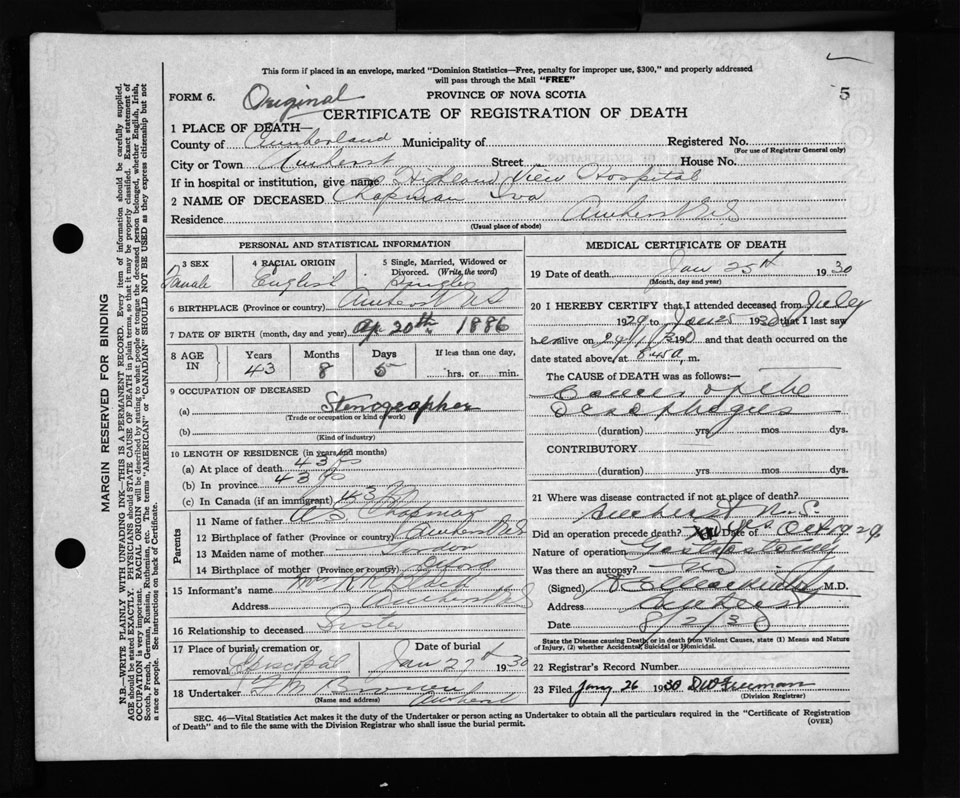 This form if placed in an envelope, marked "Dominion Statistics—Free, penalty for improper use, $300," and properly addressed
will pass through the Mail "FREE"
FORM 6. Original PROVINCE OF NOVA SCOTIA 5
CERTIFICATE OF REGISTRATION OF DEATH
1 PLACE OF DEATH—
County of Cumberland Municipality of Registered No.
(For use of Registrar General only)
City or Town Amherst Street House No.
If in hospital or institution, give name Highland View Hospital
2 NAME OF DECEASED Chapman Iva
Residence Amherst N S
(Usual place of abode)
PERSONAL AND STATISTICAL INFORMATION
3 SEX 4 RACIAL ORIGIN 5 Single, Married, Widowed or
Divorced. (Write the word)
Female English Single
6 BIRTHPLACE (Province or country) Amherst N S
7 DATE OF BIRTH (month, day and year) Ap 20th 1886
8 AGE IN Years Months Days If less than one day,
43 8 5 hrs. or min.
9 OCCUPATION OF DECEASED
(a) Stenographer
(Trade or occupation or kind of work)
(b)
(Kind of industry)
10 LENGTH OF RESIDENCE (in years and months)
(a) At place of death 43
(b) In province 43
(c) In Canada (if an immigrant) 43
Parents
11 Name of father Chapman
12 Birthplace of father (Province or country) Amherst N S
13 Maiden name of mother
14 Birthplace of mother (Province or country)
15 Informant's name Mrs
Address Amherst N S
16 Relationship to deceased Sister
17 Place of burial, cremation or Date of burial
removal Episcopal Jan 27th 1930
18 Undertaker
(Name and address) Amherst
MEDICAL CERTIFICATE OF DEATH
19 Date of death Jan 25th 1930
(Month, day and year)
20 I HEREBY CERTIFY that I attended deceased from July
1929 to Jan 25 1930 that I last saw
her alive on and that death occurred on the
date stated above, at 8.45 a. m.
The CAUSE OF DEATH was as follows:—
Cancer of the
Oesophagus
(duration) yrs mos dys.
CONTRIBUTORY
(duration) yrs. mos dys.
21 Where was disease contracted if not at place of death?
Amherst N.S.
Did an operation precede death? Yes Date of Oct 1929
Nature of operation Gastrostomy
Was there an autopsy? No
(Signed) M.D.
Address Amherst
Date 8/2/30
State the Disease causing Death, or in death from Violent Causes, state (1) Means and Nature
of Injury, (2) whether Accidental, Suicidal or Homicidal.
22 Registrar's Record Number
23 Filed Jany 26 1930 Freeman
(Division Registrar)
SEC. 46—Vital Statistics Act makes it the duty of the Undertaker or person acting as Undertaker to obtain all the particulars required in the "Certificate of Registration
of Death" and to file the same with the Division Registrar who shall issue the burial permit. (OVER)
MARGIN RESERVED FOR BINDING
N.B.—WRITE PLAINLY WITH UNFADING INK—THIS IS A PERMANENT RECORD. Every item of information should be carefully supplied.
AGE should be stated EXACTLY. PHYSICIANS should STATE CAUSE OF DEATH in plain terms, so that it may be properly classified. Exact statement of
OCCUPATION is very important. RACIAL ORIGIN will be described by stating to what people or tongue the deceased person belonged, whether English, Irish,
Scotch, French, German, Russian, Ruthenian, etc. The terms "AMERICAN" or "CANADIAN" SHOULD NOT BE USED as they express citizenship but not
a race or people. See instructions on back of Certificate.